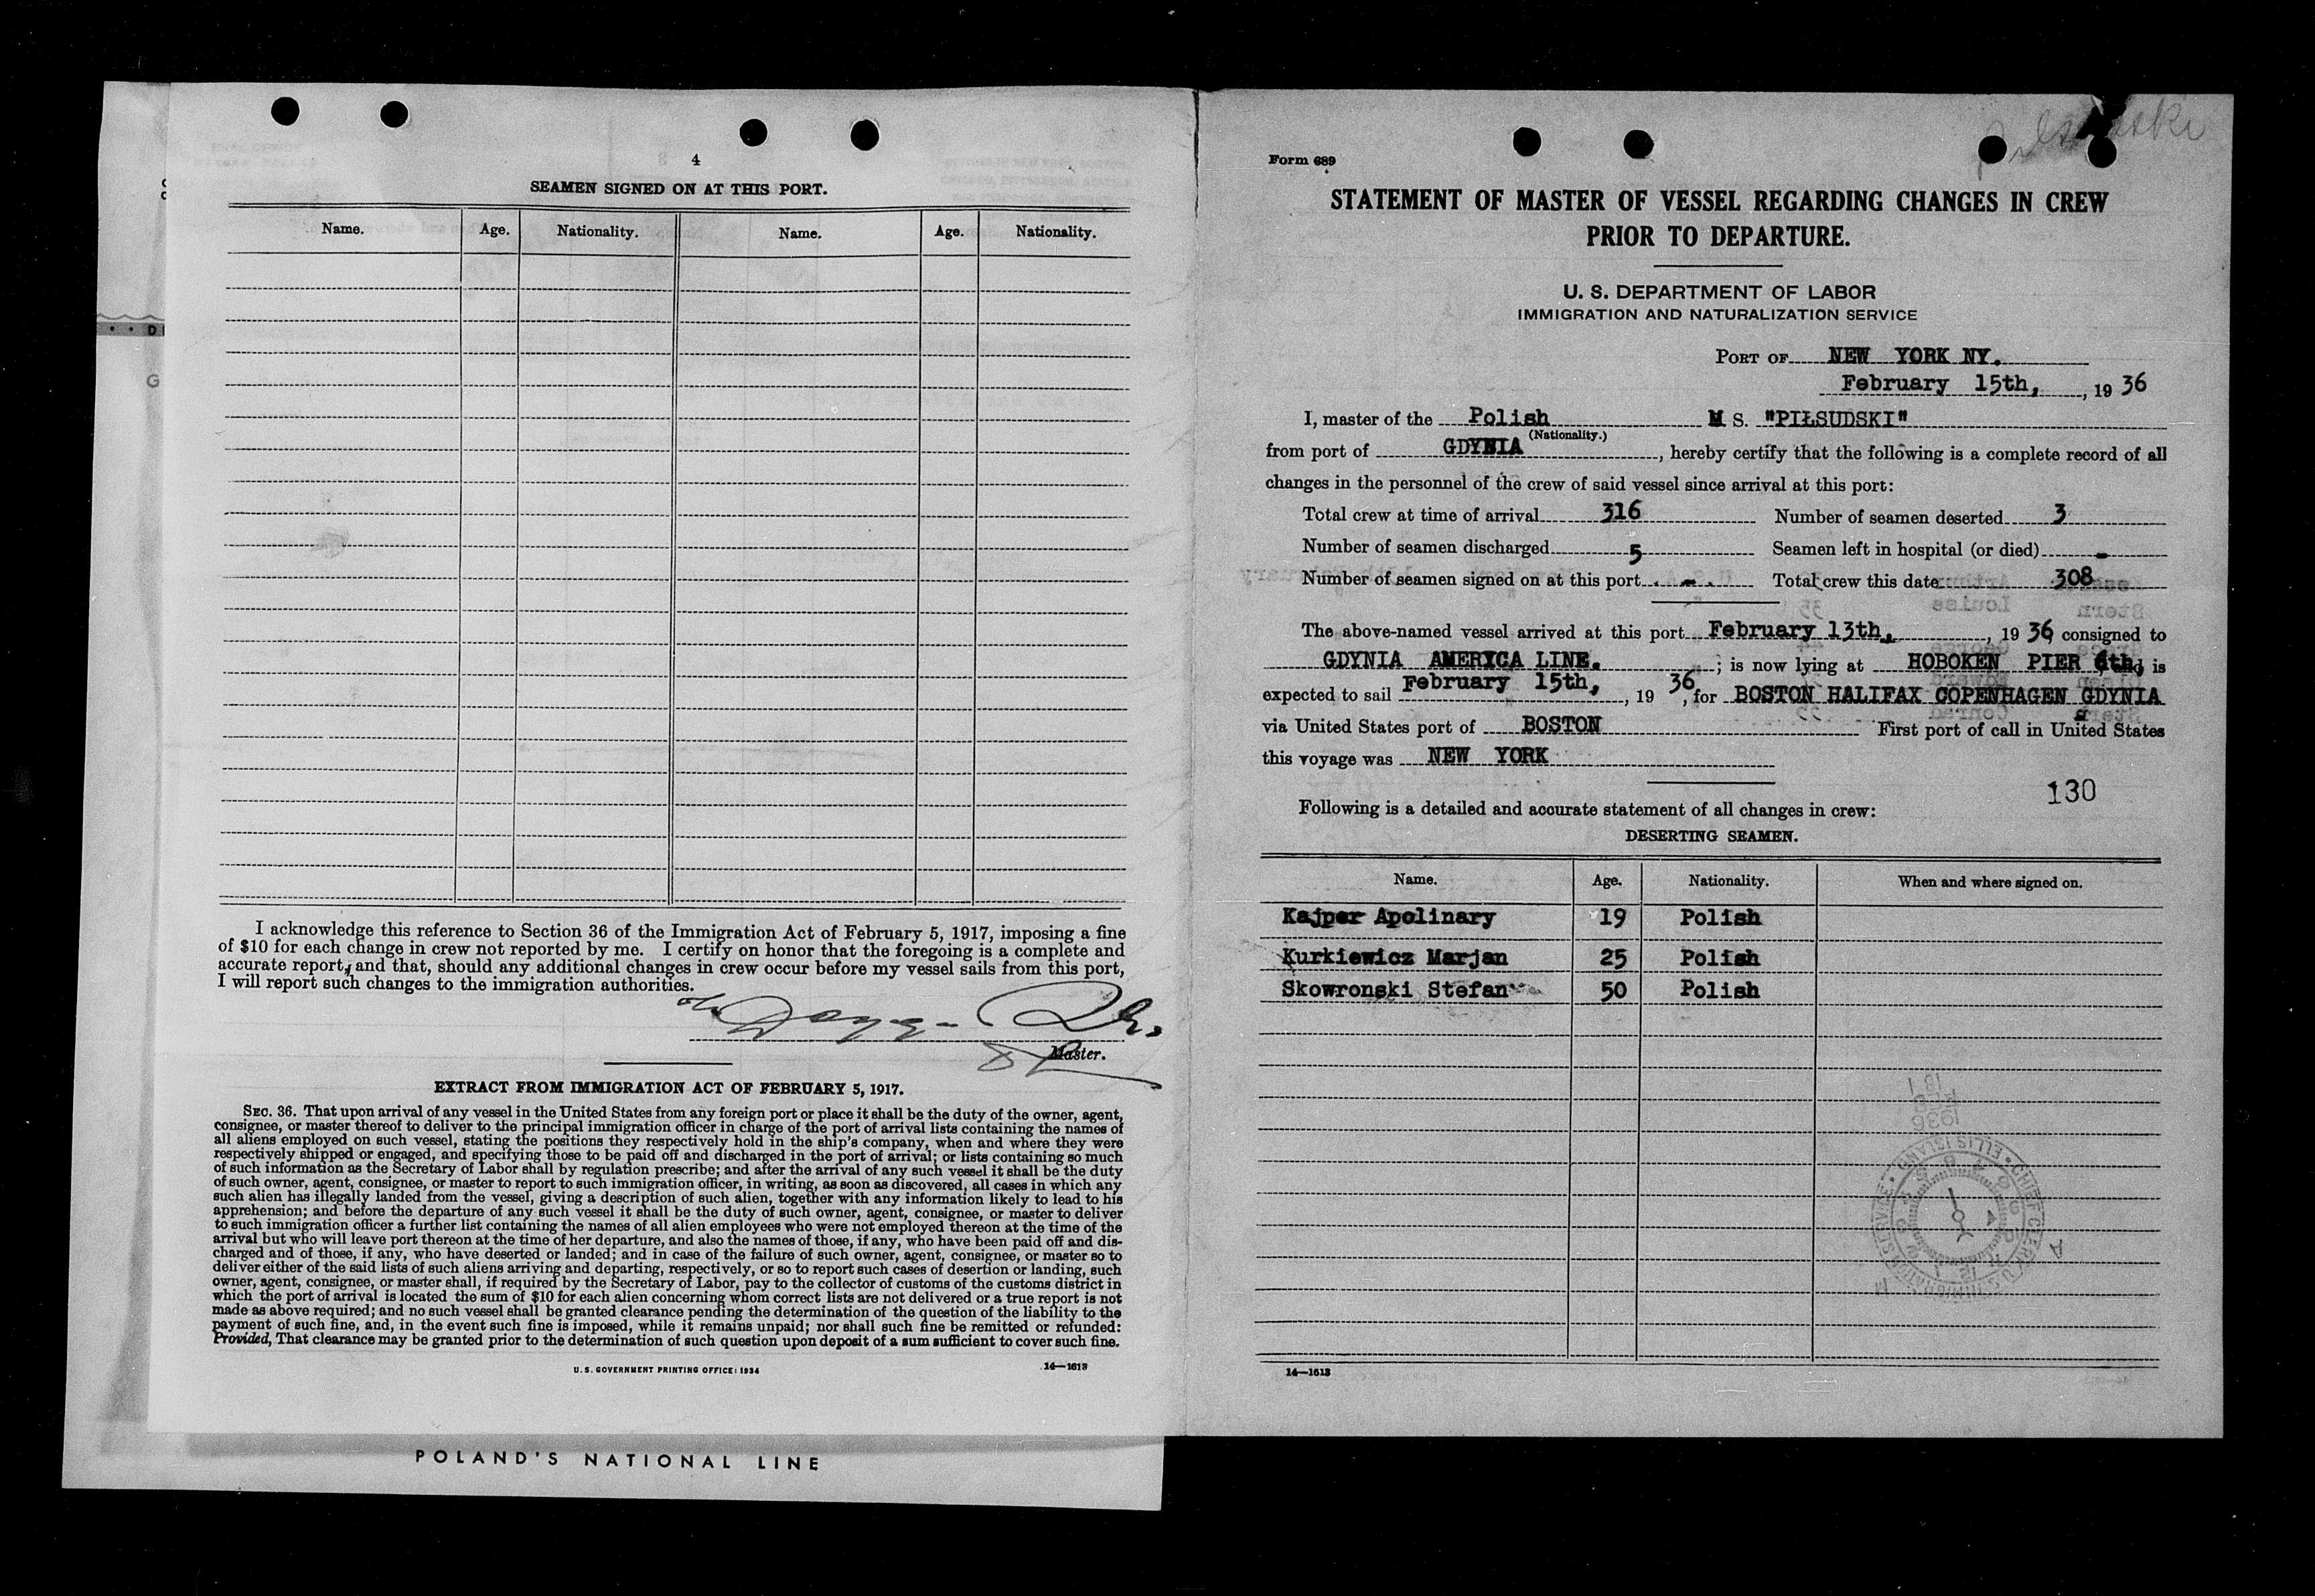 4
SEAMEN SIGNED ON AT THIS PORT.
Name. Age. Nationality. Name. Age. Nationality.
I acknowledge this reference to Section 36 of the Immigration Act of February 5, 1917, imposing a fine
of $10 for each change in crew not reported by me. I certify on honor that the foregoing is a complete and
accurate report, and that, should any additional changes in crew occur before my vessel sails from this port,
I will report such changes to the immigration authorities.
Master.
EXTRACT FROM IMMIGRATION ACT OF FEBRUARY 5, 1917.
SEC. 36. That upon arrival of any vessel in the United States from any foreign port or place it shall be the duty of the owner, agent,
consignee, or master thereof to deliver to the principal immigration officer in charge of the port of arrival lists containing the names of
all aliens employed on such vessel, stating the positions they respectively hold in the ship's company, when and where they were
respectively shipped or engaged, and specifying those to be paid off and discharged in the port of arrival; or lists containing so much
of such information as the Secretary of Labor shall by regulation prescribe; and after the arrival of any such vessel it shall be the duty
of such owner, agent, consignee, or master to report to such immigration officer, in writing, as soon as discovered, all cases in which any
such alien has illegally landed from the vessel, giving a description of such alien, together with any information likely to lead to his
apprehension; and before the departure of any such vessel it shall be the duty of such owner, agent, consignee, or master to deliver
to such immigration officer a further list containing the names of all alien employees who were not employed thereon at the time of the
arrival but who will leave port thereon at the time of her departure, and also the names of those, if any, who have been paid off and dis-
charged and of those, if any, who have deserted or landed; and in case of the failure of such owner, agent, consignee, or master so to
deliver either of the said lists of such aliens arriving and departing, respectively, or so to report such cases of desertion or landing, such
owner, agent, consignee, or master shall, if required by the Secretary of Labor, pay to the collector of customs of the customs district in
which the port of arrival is located the sum of $10 for each alien concerning whom correct lists are not delivered or a true report is not
made as above required; and no such vessel shall be granted clearance pending the determination of the question of the liability to the
payment of such fine, and, in the event such fine is imposed, while it remains unpaid; nor shall such fine be remitted or refunded:
Provided, That clearance may be granted prior to the determination of such question upon deposit of a sum sufficient to cover such fine.
U. S. GOVERNMENT PRINTING OFFICE: 1934 14—1613
POLAND'S NATIONAL LINE
Form 689
STATEMENT OF MASTER OF VESSEL REGARDING CHANGES IN CREW
PRIOR TO DEPARTURE.
U. S. DEPARTMENT OF LABOR
IMMIGRATION AND NATURALIZATION SERVICE
PORT OF NEW YORK NY.
February 15th, , 19 36
I, master of the Polish M S. "PIŁSUDSKI"
(Nationality.)
from port of GDYNIA , hereby certify that the following is a complete record of all
changes in the personnel of the crew of said vessel since arrival at this port:
Total crew at time of arrival 316 Number of seamen deserted 3
Number of seamen discharged 5 Seamen left in hospital (or died) -
Number of seamen signed on at this port . - . Total crew this date 308
The above-named vessel arrived at this port February 13th, , 19 36, consigned to
GDYNIA AMERICA LINE. ; is now lying at HOBOKEN PIER 6th, is
expected to sail February 15th, , 19 36, for BOSTON HALIFAX COPENHAGEN GDYNIA
via United States port of BOSTON First port of call in United States
this voyage was NEW YORK
130
Following is a detailed and accurate statement of all changes in crew:
DESERTING SEAMEN.
Name. Age. Nationality. When and where signed on.
Kajper Apolinary 19 Polish
Kurkiewicz Marjan 25 Polish
Skowronski Stefan 50 Polish
14—1613